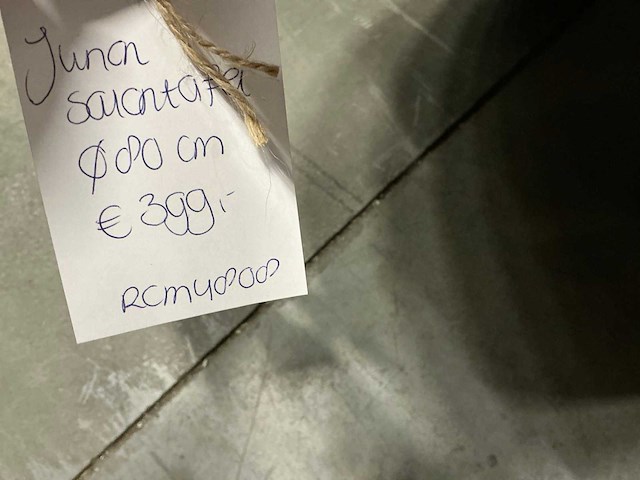 Junan
salontafel
Ø 80 cm
€ 399,-
RCM40808